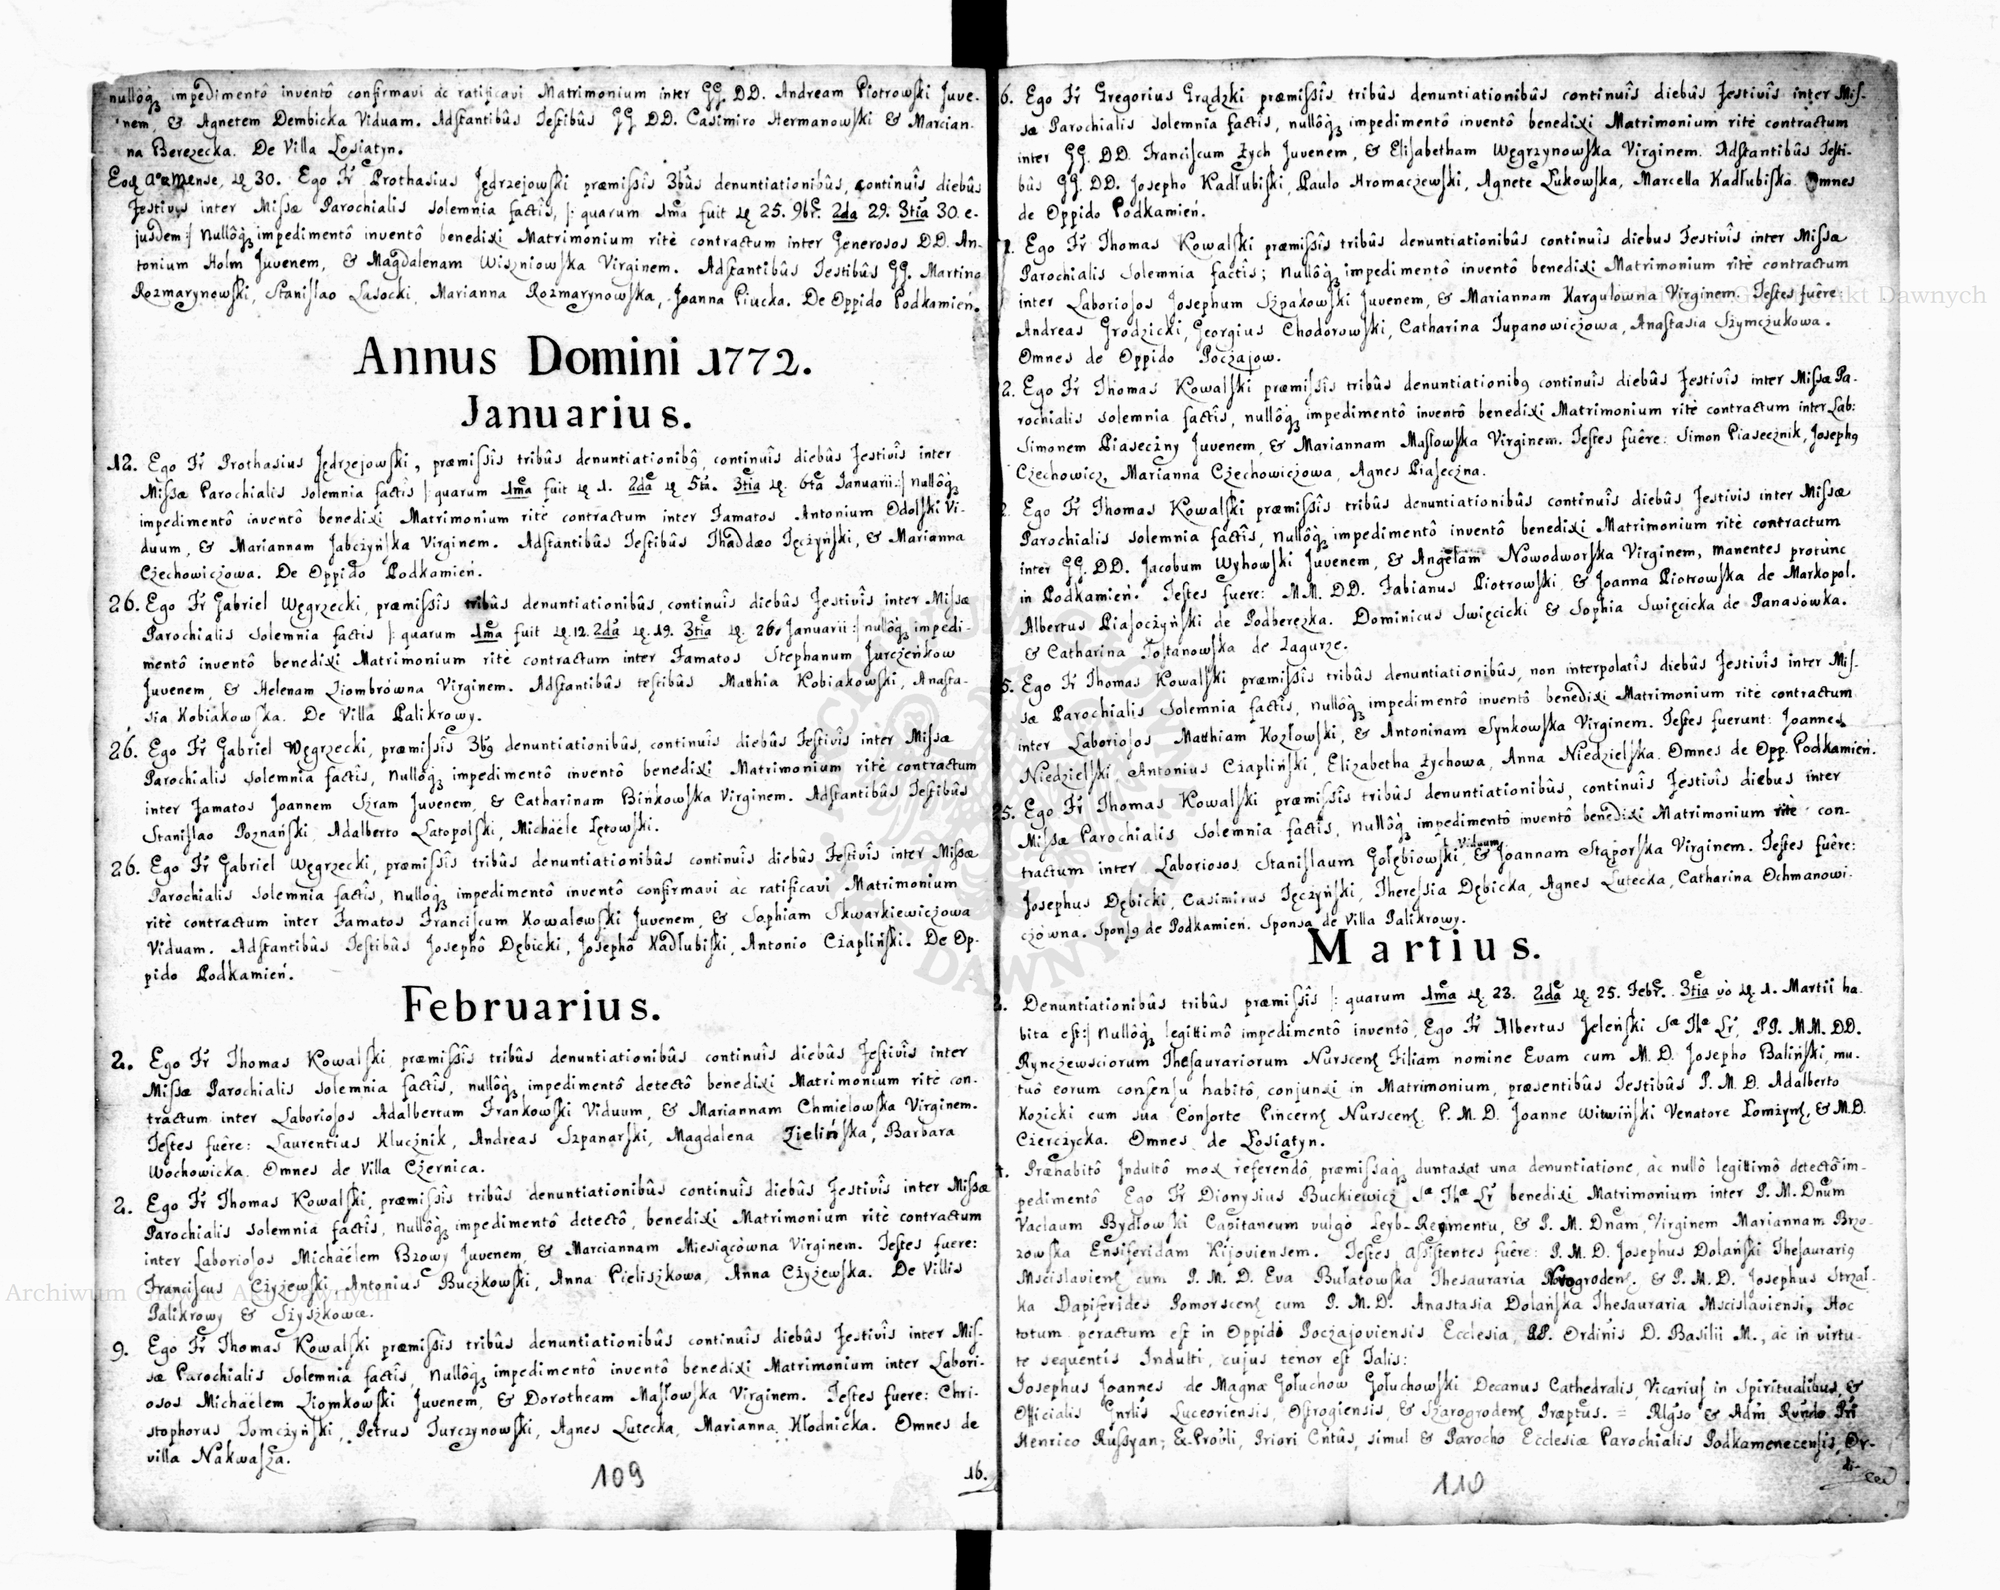 nullôq́3 impedimentô inventô confirmavi ác ratificavi Matrimonium inter GG. DD. Andream Piotrowski Juve-
nem, & Agnetem Dembicka Viduam. Adstantibûs Testibûs GG DD. Casimiro Hermanowski & Marcian-
na Berezecka. De Villa Łosiatyn.
Eoq anno mense, 30. Ego Fr̃ Prothasius Jędrzejowski præmissîs 3bûs denuntiationibûs, continuîs diebûs
Festivîs inter Missæ Parochialis solemnia factîs, |: quarum 1ma fuit 25. 9br̃. 2da 29. 3tia 30 e-
jusdem :| nullôq́3 impedimentô inventô benedixi Matrimonium ritè contractum inter Generosos DD. An-
tonium Holm Juvenem, & Magdalenam Wiszniowska Virginem. Adstantibûs Testibûs GG. Martino
Rozmarynowski, Stanislao Lasocki, Marianna Rozmarynowska, Joanna Piucka. De Oppido Podkamień.
Annus Domini 1772.
Januarius.
12. Ego Fr̃ Prothasius Jędrzejowski, præmissîs tribûs denuntiationibq, continuîs diebûs Festivîs inter
Missæ Parochialis solemnia factîs |: quarum 1ma fuit 1. 2da 5ta. 3tia 6ta Januarii :| nullôq́3
impedimentô inventô benedixi Matrimonium ritè contractum inter Famatos Antonium Odolski Vi-
duum, & Mariannam Jabczyńska Virginem. Adstantibûs Testibûs Thaddæo Tęczyński, & Marianna
Czechowiczowa. De Oppido Podkamień.
26. Ego Fr̃ Gabriel Węgrzecki, præmissîs tribûs denuntiationibûs, continuîs diebûs Festivîs inter Missæ
Parochialis solemnia factîs |: quarum 1ma fuit 12. 2da 19. 3tia 26. Januarii :| nullôq́3 impedi-
mentô inventô benedixi Matrimonium ritè contractum inter Famatos Stephanum Jurczeńkow
Juvenem, & Helenam Ziombrówna Virginem. Adstantibûs testibûs Matthia Kobiakowski, Anasta-
sia Kobiakowska. De Villa Palikrowy.
26. Ego Fr̃ Gabriel Węgrzecki, præmissîs 3bq denuntiationibûs, continuîs diebûs Festivîs inter Missæ
Parochialis solemnia factîs, nullôq́3 impedimentô inventô benedixi Matrimonium ritè contractum
inter Famatos Joannem Szram Juvenem, & Catharinam Bińkowska Virginem. Adstantibûs Testibûs
Stanislao Poznański, Adalberto Latopolski, Michaële Łętowski.
26. Ego Fr̃ Gabriel Węgrzecki, præmissîs tribûs denuntiationibûs continuîs diebûs Festivîs inter Missæ
Parochialis solemnia factîs, nullôq́3 impedimentô inventô confirmavi ác ratificavi Matrimonium
ritè contractum inter Famatos Franciscum Kowalewski Juvenem, & Sophiam Skwarkiewiczowa
Viduam. Adstantibûs Testibûs Josephô Dębicki, Josephô Kadłubiski, Antonio Czapliński. De Op-
pido Podkamień.
Februarius.
2. Ego Fr̃ Thomas Kowalski præmissîs tribûs denuntiationibûs continuîs diebûs Festivîs inter
Missæ Parochialis solemnia factîs, nullôq́3 impedimentô detectô benedixi Matrimonium ritè con-
tractum inter Laboriosos Adalbertum Frankowski Viduum, & Mariannam Chmielowska Virginem.
Testes fuêre: Laurentius Klucznik, Andreas Szpanarski, Magdalena Zielińska, Barbara
Wochowicka. Omnes de Villa Czernica.
2. Ego Fr̃ Thomas Kowalski, præmissîs tribûs denuntiationibûs continuîs diebûs Festivîs inter Missæ
Parochialis solemnia factîs, nullôq́3 impedimentô detectô, benedixi Matrimonium ritè contractum
inter Laboriosos Michaëlem Bzowy Juvenem, & Marciannam Miesiącówna Virginem. Testes fuere:
Franciscus Czyżewski, Antonius Buczkowski, Anna Pieliszkowa, Anna Czyżewska. De Villis
Palikrowy & Szyszkowce.
9. Ego Fr̃ Thomas Kowalski præmissîs tribûs denuntiationibûs continuîs diebûs Festivîs inter Mis-
sæ Parochialis solemnia factîs, nullôq́3 impedimentô inventô benedixi Matrimonium inter Labori-
osos Michaëlem Ziomkowski Juvenem, & Dorotheam Masłowska Virginem. Testes fuere: Chri-
stophorus Tomczyński, Petrus Turczynowski, Agnes Lutecka, Marianna Kłodnicka. Omnes de
villa Nakwasza.
109
16.
6. Ego Fr̃ Gregorius Grądzki præmissîs tribûs denuntiationibûs continuîs diebûs Festivîs inter Mis-
sæ Parochialis solemnia factîs, nullôq́3 impedimentô inventô benedixi Matrimonium ritè contractum
inter GG. DD. Franciscum Zych Juvenem, & Elisabetham Węgrzynowska Virginem. Adstantibûs Testi-
bûs GG. DD. Josepho Kadłubiski, Paulo Hromaczewski, Agnete Lukowska, Marcella Kadłubiska. Omnes
de Oppido Podkamień.
Ego Fr̃ Thomas Kowalski præmissîs tribûs denuntiationibûs continuîs diebus Festivîs inter Missæ
Parochialis solemnia factîs; nullôq́3 impedimentô inventô benedixi Matrimonium ritè contractum
inter Laboriosos Josephum Szpakowski Juvenem, & Mariannam Kargulowna Virginem. Testes fuêre
Andreas Grodzicki, Georgius Chodorowski, Catharina Tupanowiczowa, Anastasia Szymczukowa.
Omnes de Oppido Poczajow.
2. Ego Fr̃ Thomas Kowalski præmissîs tribûs denuntiationibq continuîs diebûs Festivîs inter Missæ Pa-
rochialis solemnia factîs, nullôq́3 impedimentô inventô benedixi Matrimonium ritè contractum inter Lab:
Simonem Piaseczny Juvenem, & Mariannam Masłowska Virginem. Testes fuêre: Simon Piasecznik, Josephq
Czechowicz, Marianna Czechowiczowa, Agnes Piaseczna.
2. Ego Fr̃ Thomas Kowalski præmissîs tribûs denuntiationibûs continuîs diebûs Festivîs inter Missæ
Parochialis solemnia factîs, nullôq́3 impedimentô inventô benedixi Matrimonium ritè contractum
inter GG. DD. Jacobum Wyhowski Juvenem, & Angelam Nowodworska Virginem, manentes protùnc
in Podkamień. Testes fuere: MM. DD. Fabianus Piotrowski & Joanna Piotrowska de Markopol.
Albertus Piasoczyński de Podberęzka. Dominicus Swięcicki & Sophia Swięcicka de Panasówka.
& Catharina Tostanowska de Zagurze.
5. Ego Fr̃ Thomas Kowalski præmissîs tribûs denuntiationibûs, non interpolatîs diebûs Festivîs inter Mis-
sæ Parochialis solemnia factîs, nullôq́3 impedimentô inventô benedixi Matrimonium ritè contractum
inter Laboriosos Matthiam Kozłowski, & Antoninam Synkowska Virginem. Testes fuerunt: Joannes
Niedzielski, Antonius Czapliński, Elizabetha Zychowa, Anna Niedzielska. Omnes de Opp. Podkamień.
25. Ego Fr̃ Thomas Kowalski præmissîs tribûs denuntiationibûs, continuîs Festivîs diebus inter
Missæ Parochialis solemnia factîs, nullôq́3 impedimentô inventô benedixi Matrimonium ritè con-
tractum inter Laboriosos Stanislaum Gołębiowski, Viduum & Joannam Stąporska Virginem. Testes fuêre:
Josephus Dębicki, Casimirus Tęczyński, Theressia Dębicka, Agnes Lutecka, Catharina Ochmanowi-
czówna. Sponsq de Podkamień. Sponsa de Villa Palikrowy.
Martius.
Denuntiationibûs tribûs præmissîs |: quarum 1ma 23. 2da 25. Febr̃. 3tia vò 1. Martii ha-
bita est :| nullôq́3 legittimô impedimentô inventô, Ego Fr̃ Albertus Jeleński Sæ Thæ Lr̃, PP. MM. DD.
Rynczewsciorum Thesaurariorum Nurscen Filiam nomine Evam cum M. D. Josepho Baliński, mu-
tuô eorum consensu habitô, conjunxi in Matrimonium, præsentibûs Testibûs P. M. D. Adalberto
Kozicki cum sua Consorte Pincern Nurscen, P. M. D. Joanne Witwiński Venatore Łomżyn, & M.D.
Czerczycka. Omnes de Łosiatyn.
Præhabitô Indultô mox referendô, præmissaq́3 duntaxat una denuntiatione, ác nullô legittimô detectô im-
pedimentô Ego Fr̃ Dionysius Buckiewicz Sæ Thæ Lr̃ benedixi Matrimonium inter P. M. Dnum
Vaclaum Bydłowski Capitaneum vulgò Leyb-Regimentu, & P. M. Dnam Virginem Mariannam Brzo-
zowska Ensiferidam Kijoviensem. Testes assistentes fuêre: P. M. D. Josephus Dolański Thesaurariq
Mscislavien cum P. M. D. Eva Bułatowska Thesauraria Novogroden. & P. M. D. Josephus Strzał-
ka Dapiferides Pomorscen cum P. M. D. Anastasia Dolańska Thesauraria Mscislaviensi, Hoc
totum peractum est in Oppido Poczajoviensis Ecclesia, PP. Ordinis D. Basilii M., ác in virtu-
te sequentis Indulti, cujus tenor est Talis:
Josephus Joannes de Magna Gołuchow Gołuchowski Decanus Cathedralis, Vicarius in Spiritualibus, &
Officialis Gnrlis Luceoriensis, Ostrogiensis, & Szarogroden Præptus. = Rlgso & Adm Rvndo Pri
Henrico Russyan; Ex-Provli, Priori Cntûs, simul & Parocho Ecclesiæ Parochialis Podkamenecensis, Or-
di-
110
Archiwum Główne Akt Dawnych